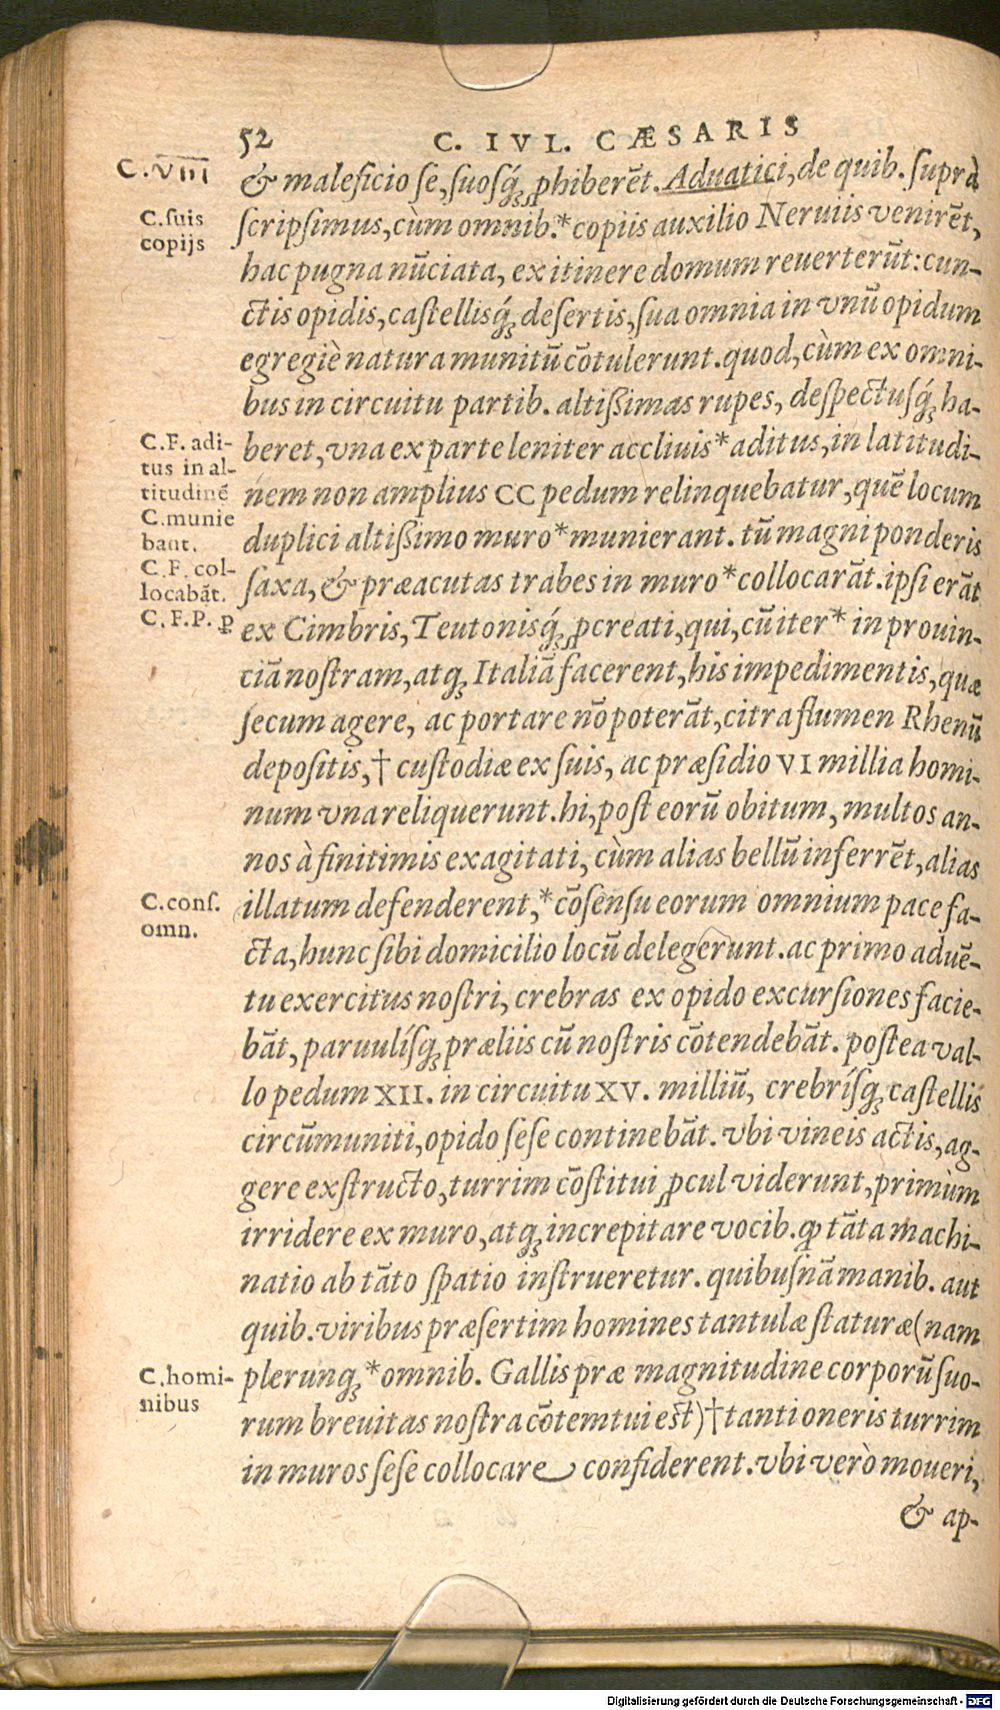 52
C. IVL. CÆSARIS
C. VIII
& maleficio se, suosq́ꝫ ꝓhiberēt. Aduatici, de quib. suprà
C. suis
copijs
scripsimus, cùm omnib.* copiis auxilio Neruiis venirēt,
hac pugna nūciata, ex itinere domum reuerterūt: cun-
ctis opidis, castellisq́ꝫ desertis, sua omnia in vnū opidum
egregiè natura munitū cōtulerunt. quod, cùm ex omni-
bus in circuitu partib. altißimas rupes, despectusq́ꝫ ha-
C. F. adi-
tus in al-
titudinē
beret, vna ex parte leniter accliuis* aditus, in latitudi-
nem non amplius CC pedum relinquebatur, quē locum
C. munie
bant.
duplici altißimo muro* munierant. tū magni ponderis
C. F. col-
locabāt.
saxa, & præacutas trabes in muro* collocarāt. ipsi erāt
C. F. P. ꝑ
ex Cimbris, Teutonisq́ꝫ ꝓcreati, qui, cū iter* in prouin-
ciā nostram, atqꝫ Italiā facerent, his impedimentis, quæ
secum agere, ac portare nō poterāt, citra flumen Rhenū
depositis, † custodiæ ex suis, ac præsidio VI millia homi-
num vna reliquerunt. hi, post eorū obitum, multos an-
nos à finitimis exagitati, cùm alias bellū inferrēt, alias
C. cons.
omn.
illatum defenderent,* cōsensu eorum omnium pace fa-
cta, hunc sibi domicilio locū delegerunt. ac primo aduē-
tu exercitus nostri, crebras ex opido excursiones facie-
bāt, paruulísqꝫ præliis cū nostris cōtendebāt. postea val-
lo pedum XII. in circuitu XV. milliū, crebrísqꝫ castellis
circūmuniti, opido sese continebāt. vbi vineis actis, ag-
gere exstructo, turrim cōstitui ꝓcul viderunt, primùm
irridere ex muro, atqꝫ increpitare vocib. ꝙ tāta machi-
natio ab tāto spatio instrueretur. quibusnā manib. aut
quib. viribus præsertim homines tantulæ staturæ (nam
C. homi-
nibus
plerunqꝫ* omnib. Gallis præ magnitudine corporū suo-
rum breuitas nostra cōtemtui est) † tanti oneris turrim
in muros sese collocare confiderent. vbi verò moueri,
& ap-
Digitalisierung gefördert durch die Deutsche Forschungsgemeinschaft - DFG